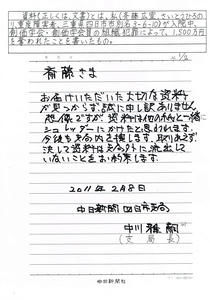 資料(正しくは、文書)とは、私(斉藤広堂、さいとうひろの
り、重度障害者、三重県四日市市別名3-6-10)が入院中、
創価学会・創価学会員の組織犯罪によって、1,500万円
を奪われたことを書いたもの。
1/2
斉藤さま
お届けいただいた大切な資料
が見つからず、誠に申し訳ありません。
想像ですが資料は他の紙と一緒に
シュレッダーにかけたと思われます。
今後も支局内を捜します。取りあえず、
決して資料は支局外に流出して
いないことをお約束します。
2011年2月8日
中日新聞四日市支局
中川雅嗣
(支局長)
中日新聞社